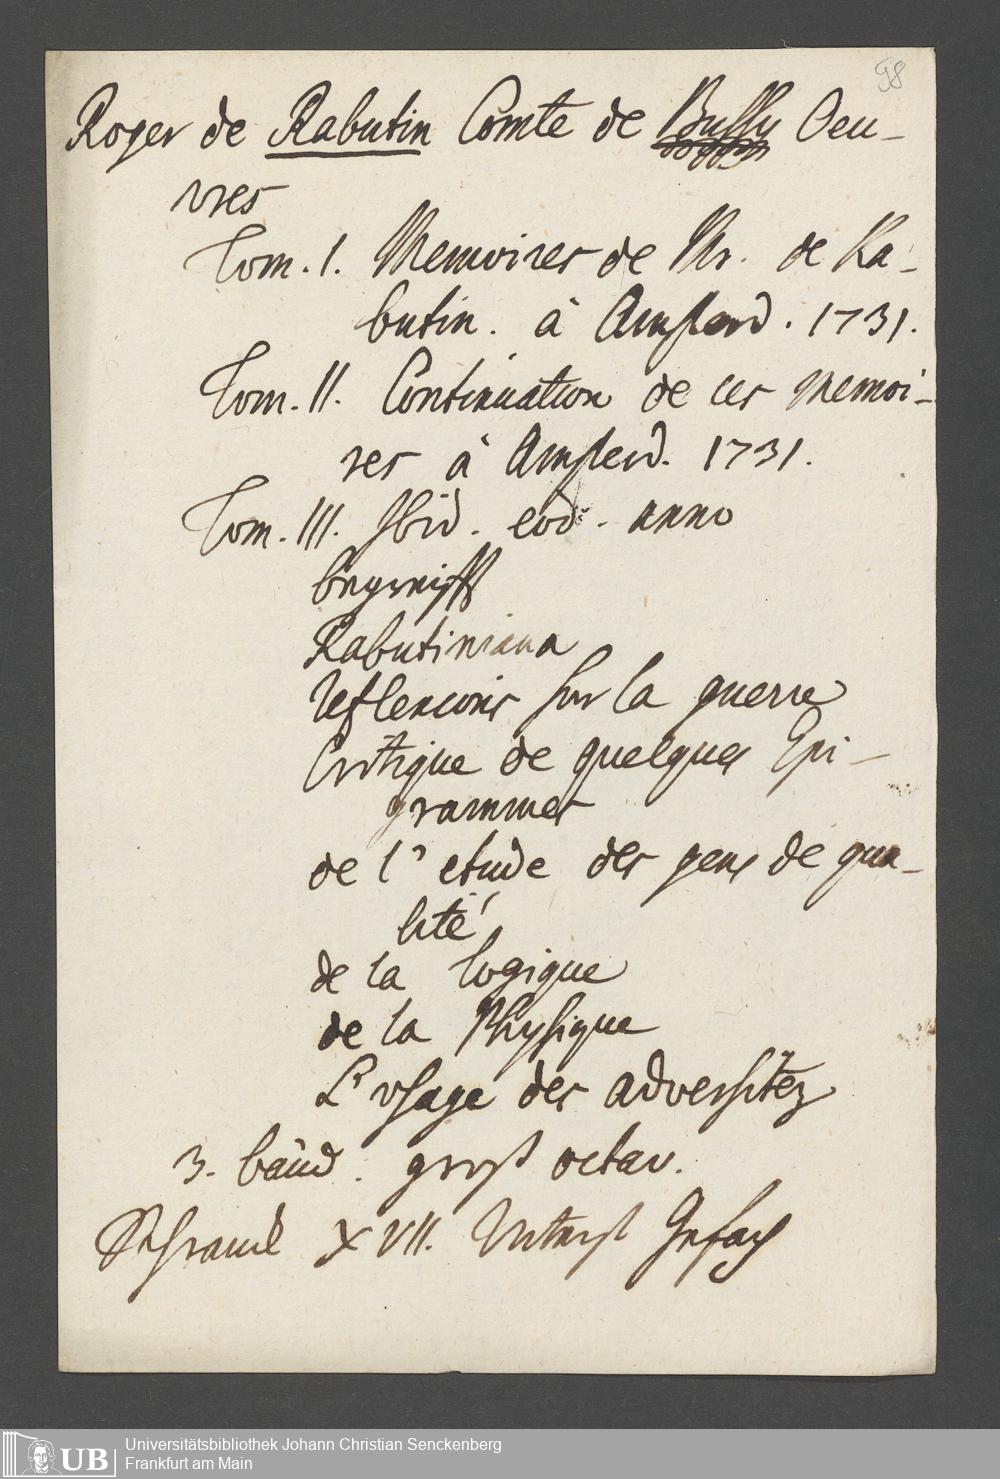 98
Roger de Rabutin Comte de Bussy Oeu-
vres
Tom. I. Memoires de Mr. de Ra-
butin. à Amsterd. 1731.
Tom. II. Continuation de ces Memoi-
res à Amsterd. 1731.
Tom. III. Ibid. eod. anno
begreifft
Rabutiniana
Reflexions sur la guerre
Critique de quelques Epi-
grammes
de l'etude des gens de qua-
lité
de la logique
de la Physique
L'usage des adversitéz
3. bänd. groß octav.
Schranck XVII. Unterst Gefach
Universitätsbibliothek Johann Christian Senckenberg
Frankfurt am Main
UB